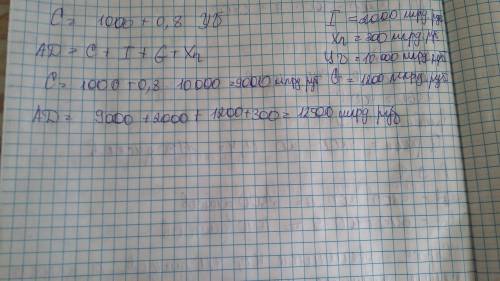 C = 1000 + 0,8 УД
AD = C + I + G + Xn
C = 1000 + 0,8 10000 = 9000 млрд руб
AD = 9000 + 2000 + 1200 + 300 = 12500 млрд руб
I = 2000 млрд. руб
Xn = 300 млрд. руб
УД = 10 000 млрд. руб
G = 1200 млрд. руб